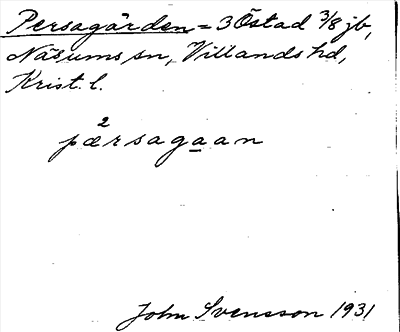 Persagården = 3 Östad 3/8 jb,
Näsums sn, Villands hd,
Krist. l.
2
pærsagaan
John Svensson 1931